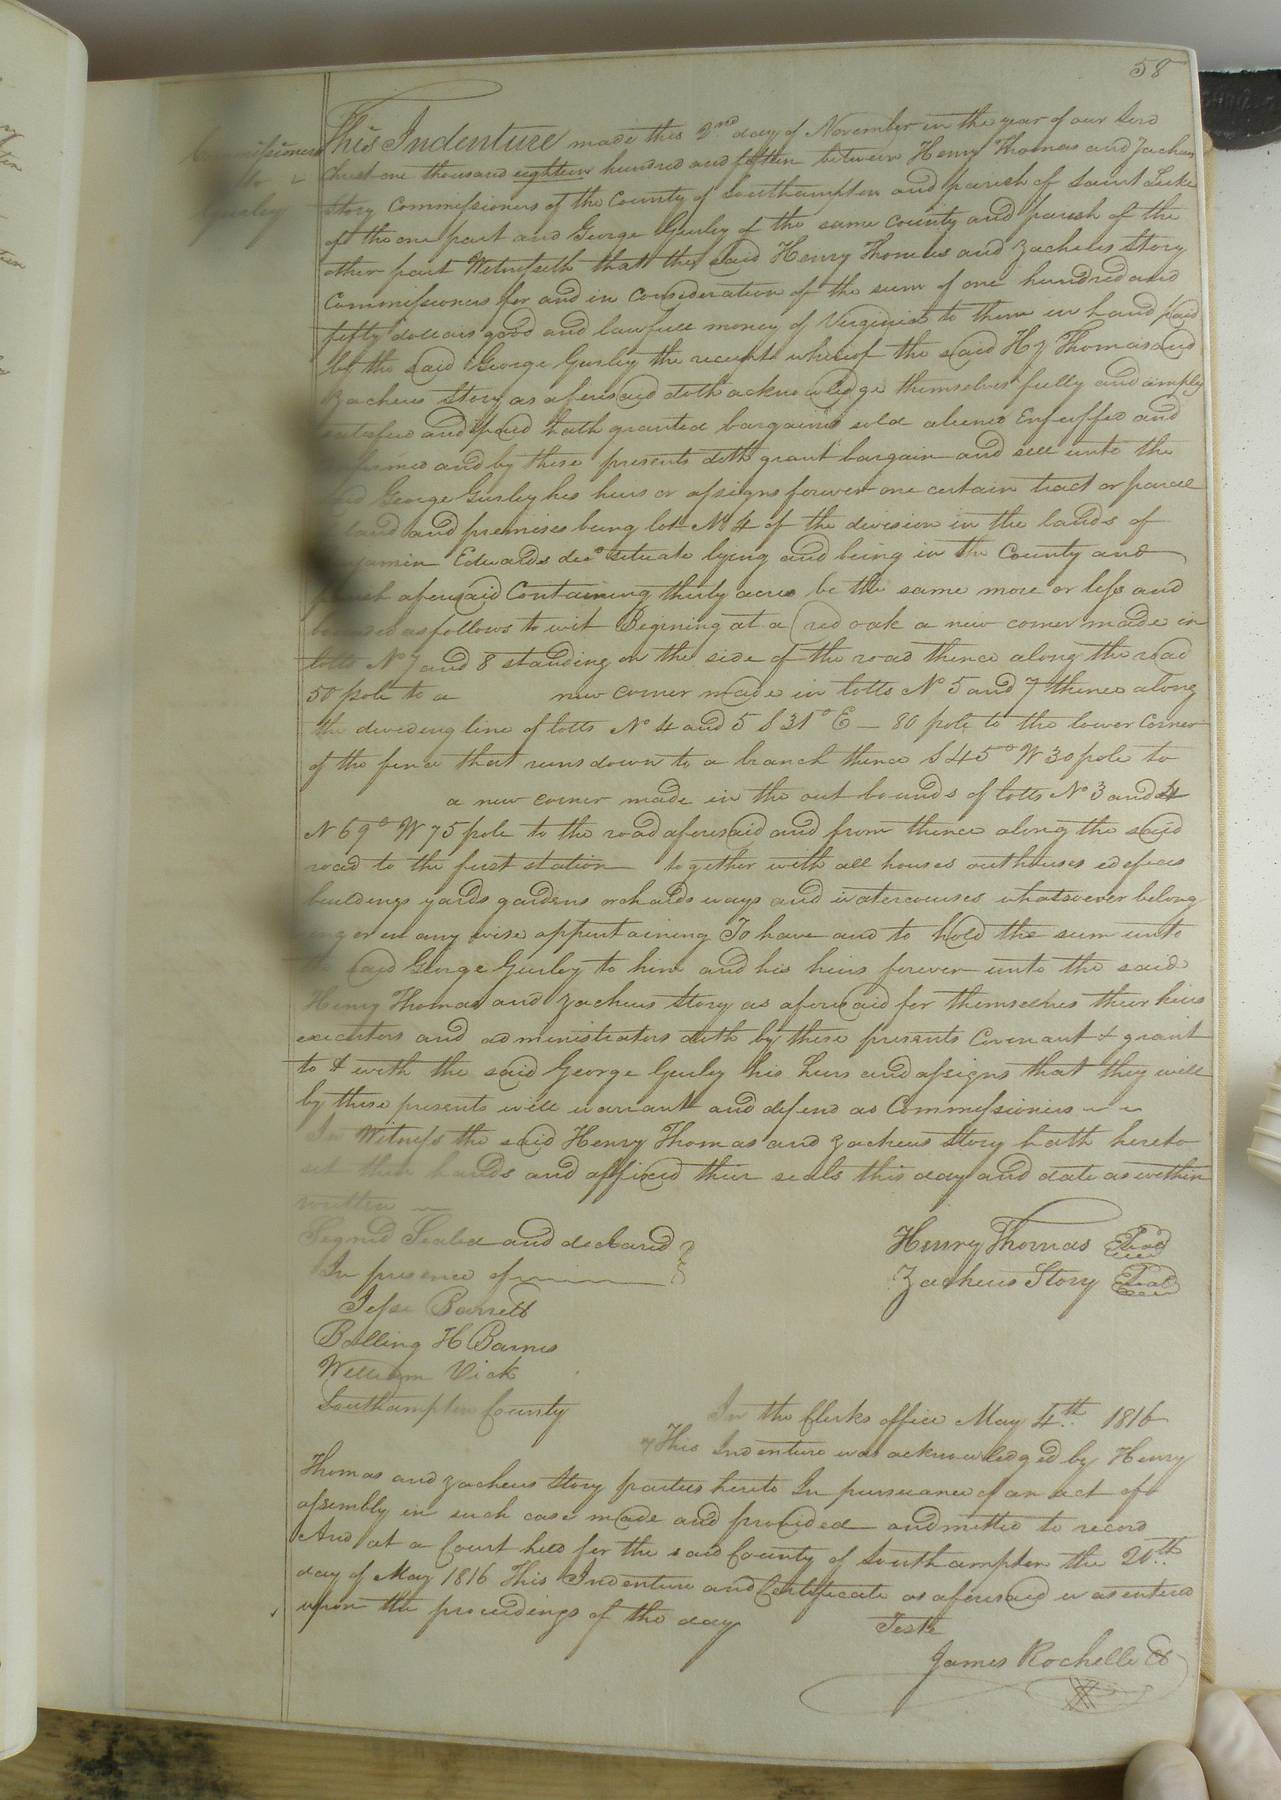 58
Commissioners
to
Gurley
This Indenture made this 2nd day of November in the year of our Lord
Christ one thousand eighteen hundred and fifteen between Henry Thomas and Zacheus
Story Commissioners of the County of Southampton and parish of Saint Luke
of the one part and George Gurley of the same county and parish of the
other part Witnesseth that the said Henry Thomas and Zacheus Story
Commissioners for and in Consideration of the sum of one hundred and
fifty dollars good and lawfull money of Virginia to them in hand paid
by the said George Gurley the receipt whereof the said Hy Thomas and
Zacheus Story as aforesaid doth acknowledge themselves fully and amply
satisfied and paid hath granted bargained sold aliened Enfeoffed and
and by these presents doth grant bargain and sell unto the
said George Gurley his heirs or assigns forever one certain tract or parcel
land and premises being lot No 4 of the division in the lands of
Edwards decd situate lying and being in the County and
parish aforesaid Containing thirty acres be the same more or less and
bounded as follows to wit Begining at a red oak a new corner made in
lotts No 7 and 8 standing on the side of the road thence along the road
50 pole to a new corner made in lotts No 5 and 7 thence along
the dividing line of lotts No 4 and 5 S 31° E — 80 pole to the lower Corner
of the fence that runs down to a branch thence S 45° W 30 pole to
a new corner made in the out bounds of lotts No 3 and 4
N 69° W 75 pole to the road aforesaid and from thence along the said
road to the first station together with all houses outhouses edefices
buildings yards gardens orchalds ways and watercourses whatsoever belong
ing or in any wise appertaining To have and to hold the sum unto
the said George Gurley to him and his heirs forever unto the said
Henry Thomas and Zacheus Story as aforesaid for themselves their heirs
executors and administrators doth by these presents Covenant & grant
to & with the said George Gurley his heirs and assigns that they will
by these presents will warrant and defend as Commissioners ~ ~
In Witness the said Henry Thomas and Zacheus Story hath hereto
set their hands and affixed their seals this day and date as within
written ~
Signed Sealed and declared Henry Thomas Seal
In presence of Zacheus Story Seal
Jesse Barrett
Bolling H Barnes
William Vick
Southampton County In the Clerks office May 4th 1816
This Indenture was acknowledged by Henry
Thomas and Zacheus Story parties hereto In pursuance of an act of
assembly in such case made and provided and mitted to record
And at a Court held for the said County of Southampton the 20th
day of May 1816 This Indenture and Certificate as aforesaid was entered
upon the proceedings of the day
Teste
James Rochelle Cl